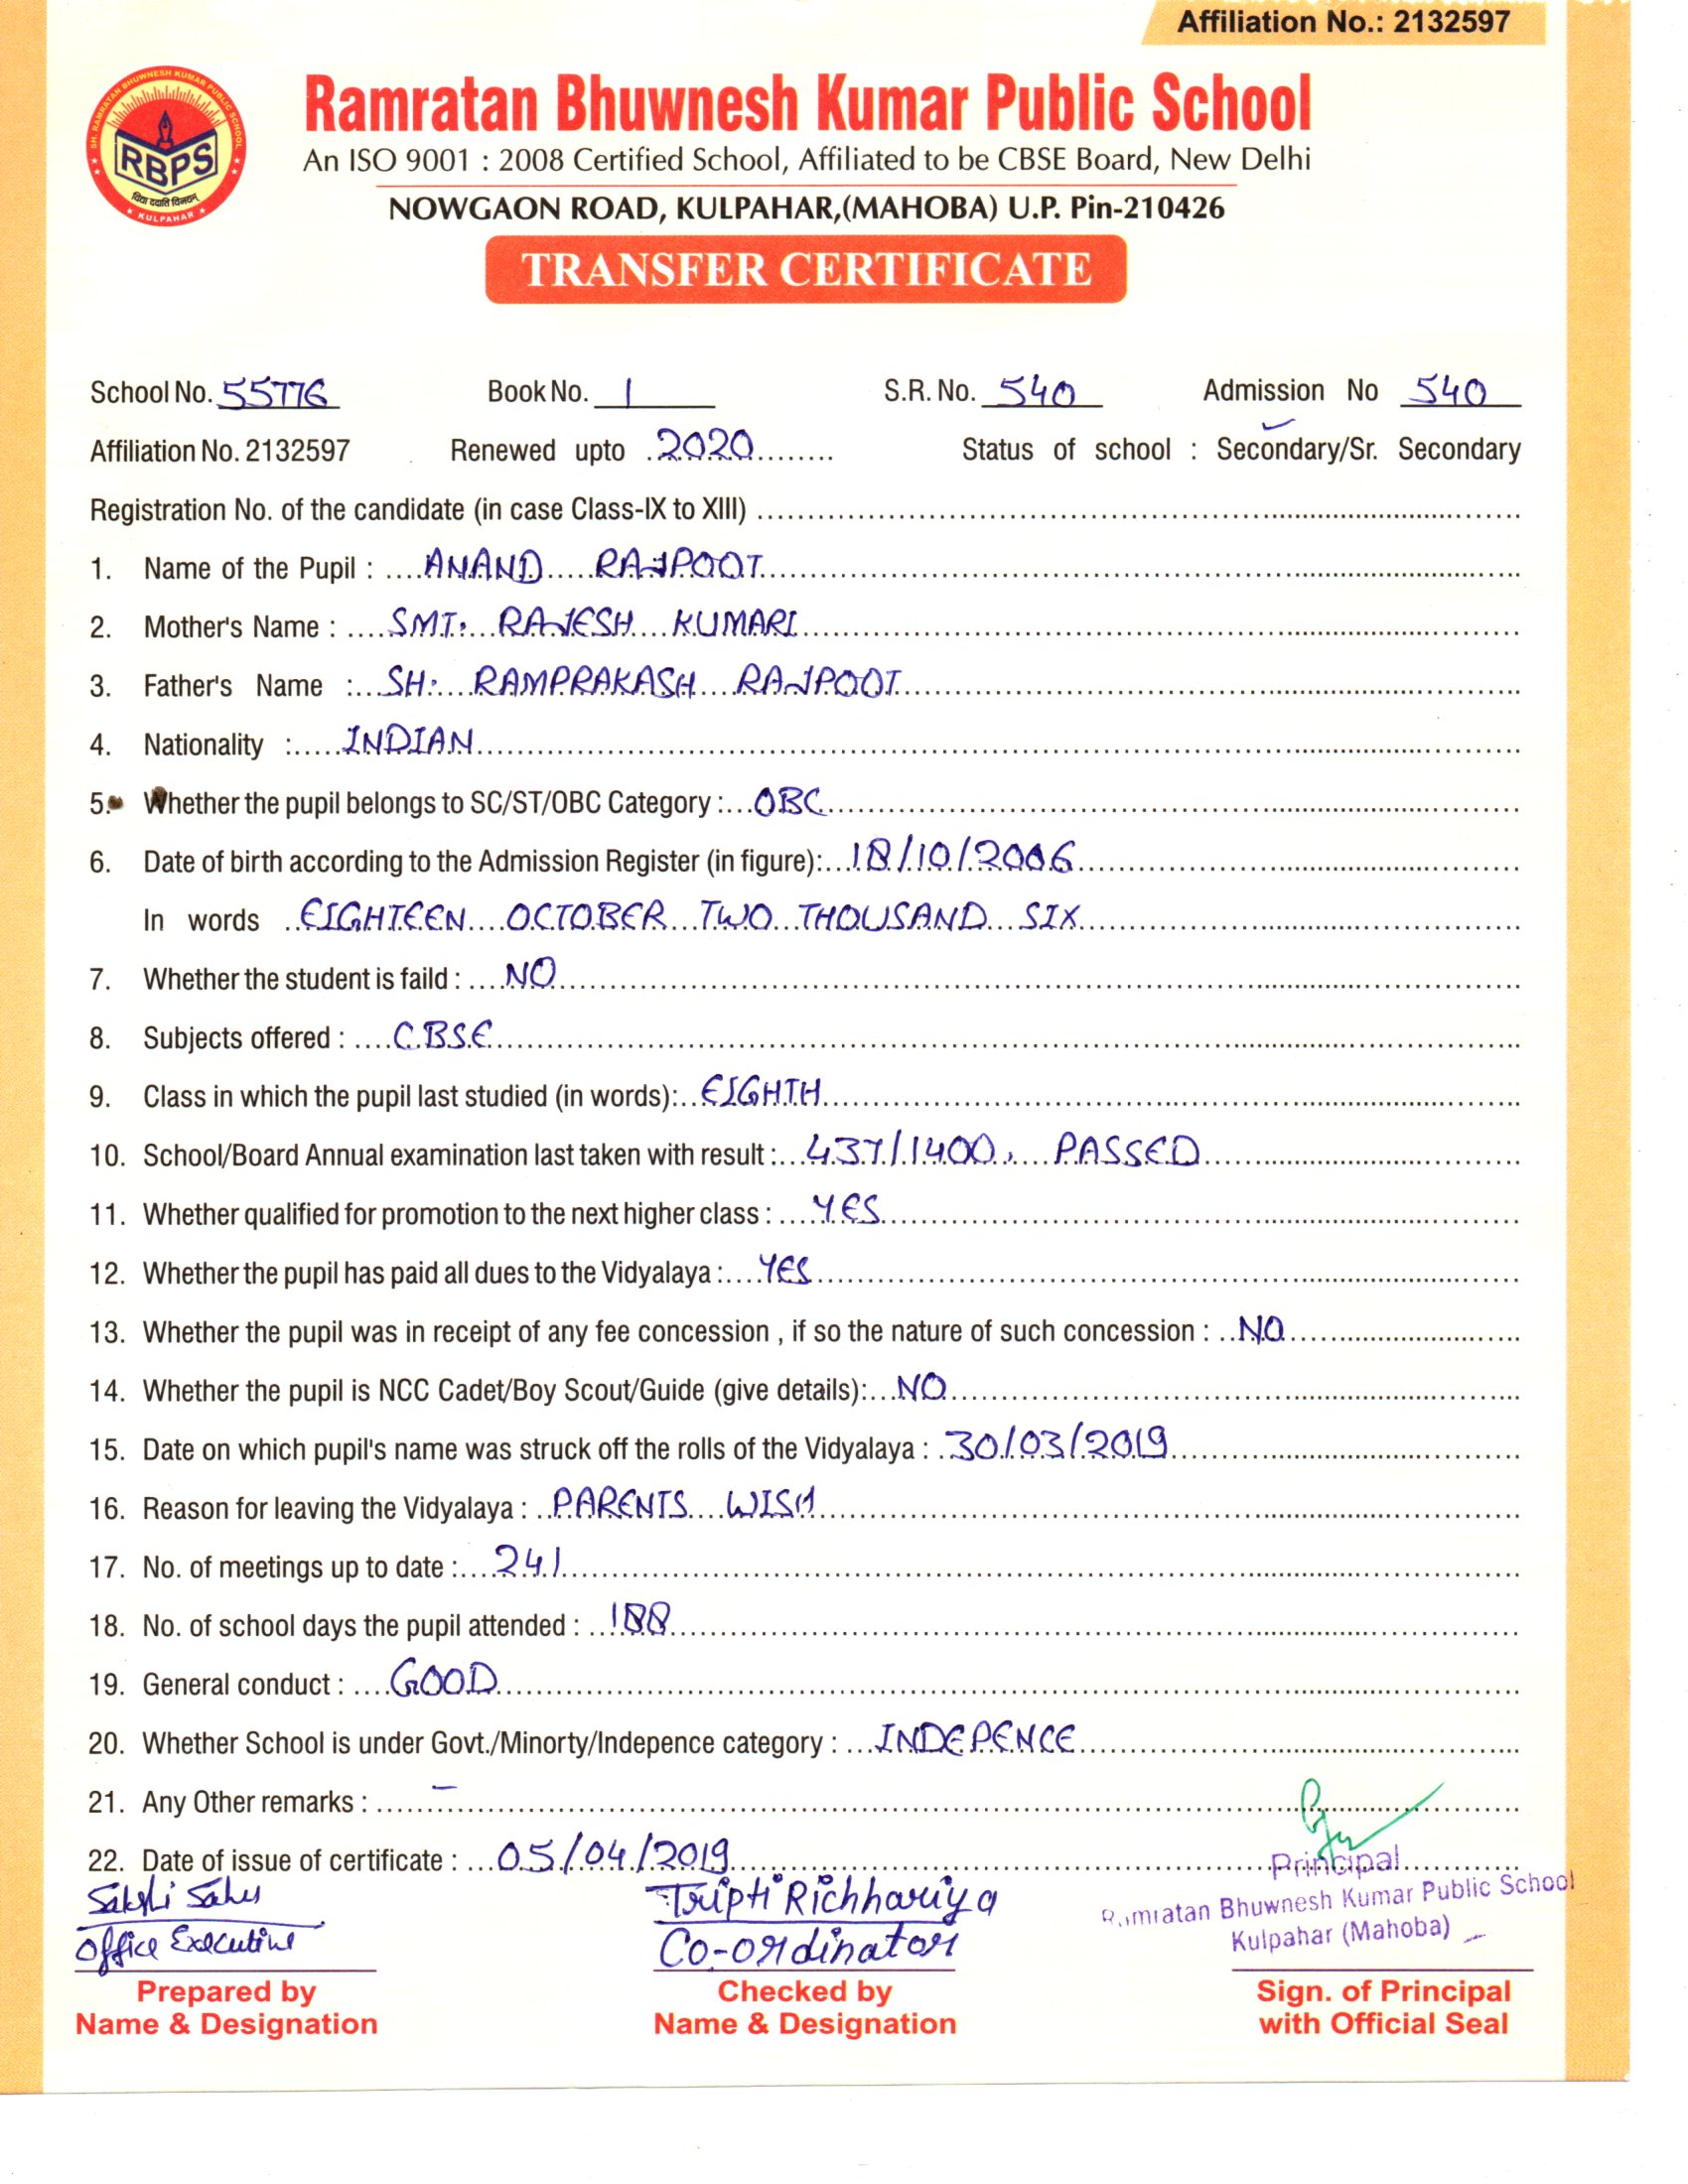 Affiliation No.: 2132597
SH. RAMRATAN BHUWNESH KUMAR PUBLIC SCHOOL
RBPS
विद्या ददाति विनयम्
KULPAHAR
Ramratan Bhuwnesh Kumar Public School
An ISO 9001 : 2008 Certified School, Affiliated to be CBSE Board, New Delhi
NOWGAON ROAD, KULPAHAR,(MAHOBA) U.P. Pin-210426
TRANSFER CERTIFICATE
School No. 55776 Book No. 1 S.R. No. 540 Admission No 540
Affiliation No. 2132597 Renewed upto 2020 Status of school : Secondary/Sr. Secondary
Registration No. of the candidate (in case Class-IX to XIII)
1. Name of the Pupil : ANAND RAJPOOT
2. Mother's Name : SMT. RAJESH KUMARI
3. Father's Name : SH. RAMPRAKASH RAJPOOT
4. Nationality : INDIAN
5. Whether the pupil belongs to SC/ST/OBC Category : OBC
6. Date of birth according to the Admission Register (in figure): 18/10/2006
In words EIGHTEEN OCTOBER TWO THOUSAND SIX
7. Whether the student is faild : NO
8. Subjects offered : CBSE
9. Class in which the pupil last studied (in words): EIGHTH
10. School/Board Annual examination last taken with result : 437/1400, PASSED
11. Whether qualified for promotion to the next higher class : YES
12. Whether the pupil has paid all dues to the Vidyalaya : YES
13. Whether the pupil was in receipt of any fee concession , if so the nature of such concession : NO
14. Whether the pupil is NCC Cadet/Boy Scout/Guide (give details): NO
15. Date on which pupil's name was struck off the rolls of the Vidyalaya : 30/03/2019
16. Reason for leaving the Vidyalaya : PARENTS WISH
17. No. of meetings up to date : 241
18. No. of school days the pupil attended : 188
19. General conduct : GOOD
20. Whether School is under Govt./Minorty/Indepence category : INDEPENCE
21. Any Other remarks : –
22. Date of issue of certificate : 05/04/2019
Sakshi Sahu
Office Executive
Prepared by
Name & Designation
Tripti Richhariya
Co-ordinator
Checked by
Name & Designation
Principal
Ramratan Bhuwnesh Kumar Public School
Kulpahar (Mahoba)
Sign. of Principal
with Official Seal